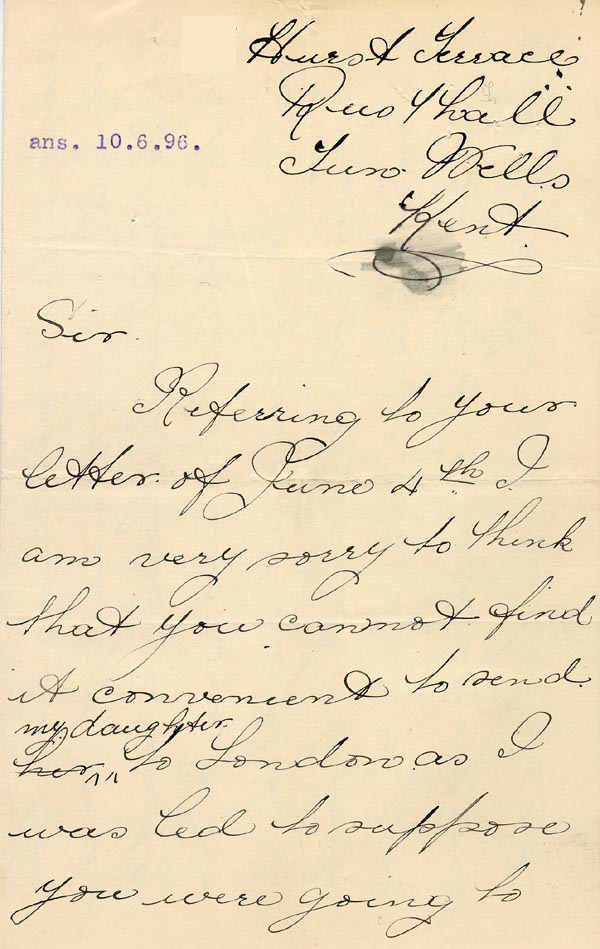 Hurst Terrace
Rusthall
ans. 10.6.96.
Tun. Wells
Kent.
Sir.
Referring to your
letter of June 4th I
am very sorry to think
that you cannot find
it convenient to send
my daughter
her to London as I
was led to suppose
you were going to